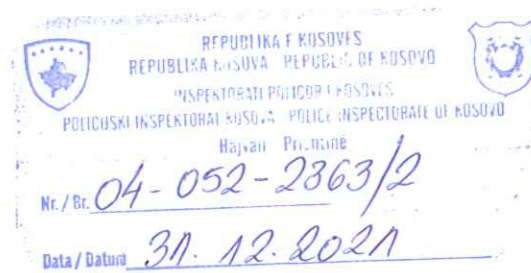 REPUBLIKA E KOSOVËS
REPUBLIKA KOSOVA REPUBLIC OF KOSOVO
INSPEKTORATI POLICOR I KOSOVËS
POLICIJSKI INSPEKTORAT KOSOVA POLICE INSPECTORATE OF KOSOVO
Hajvali Prishtinë
Nr. / Br. 04-052-2363/2
Data / Datum 31. 12. 2021